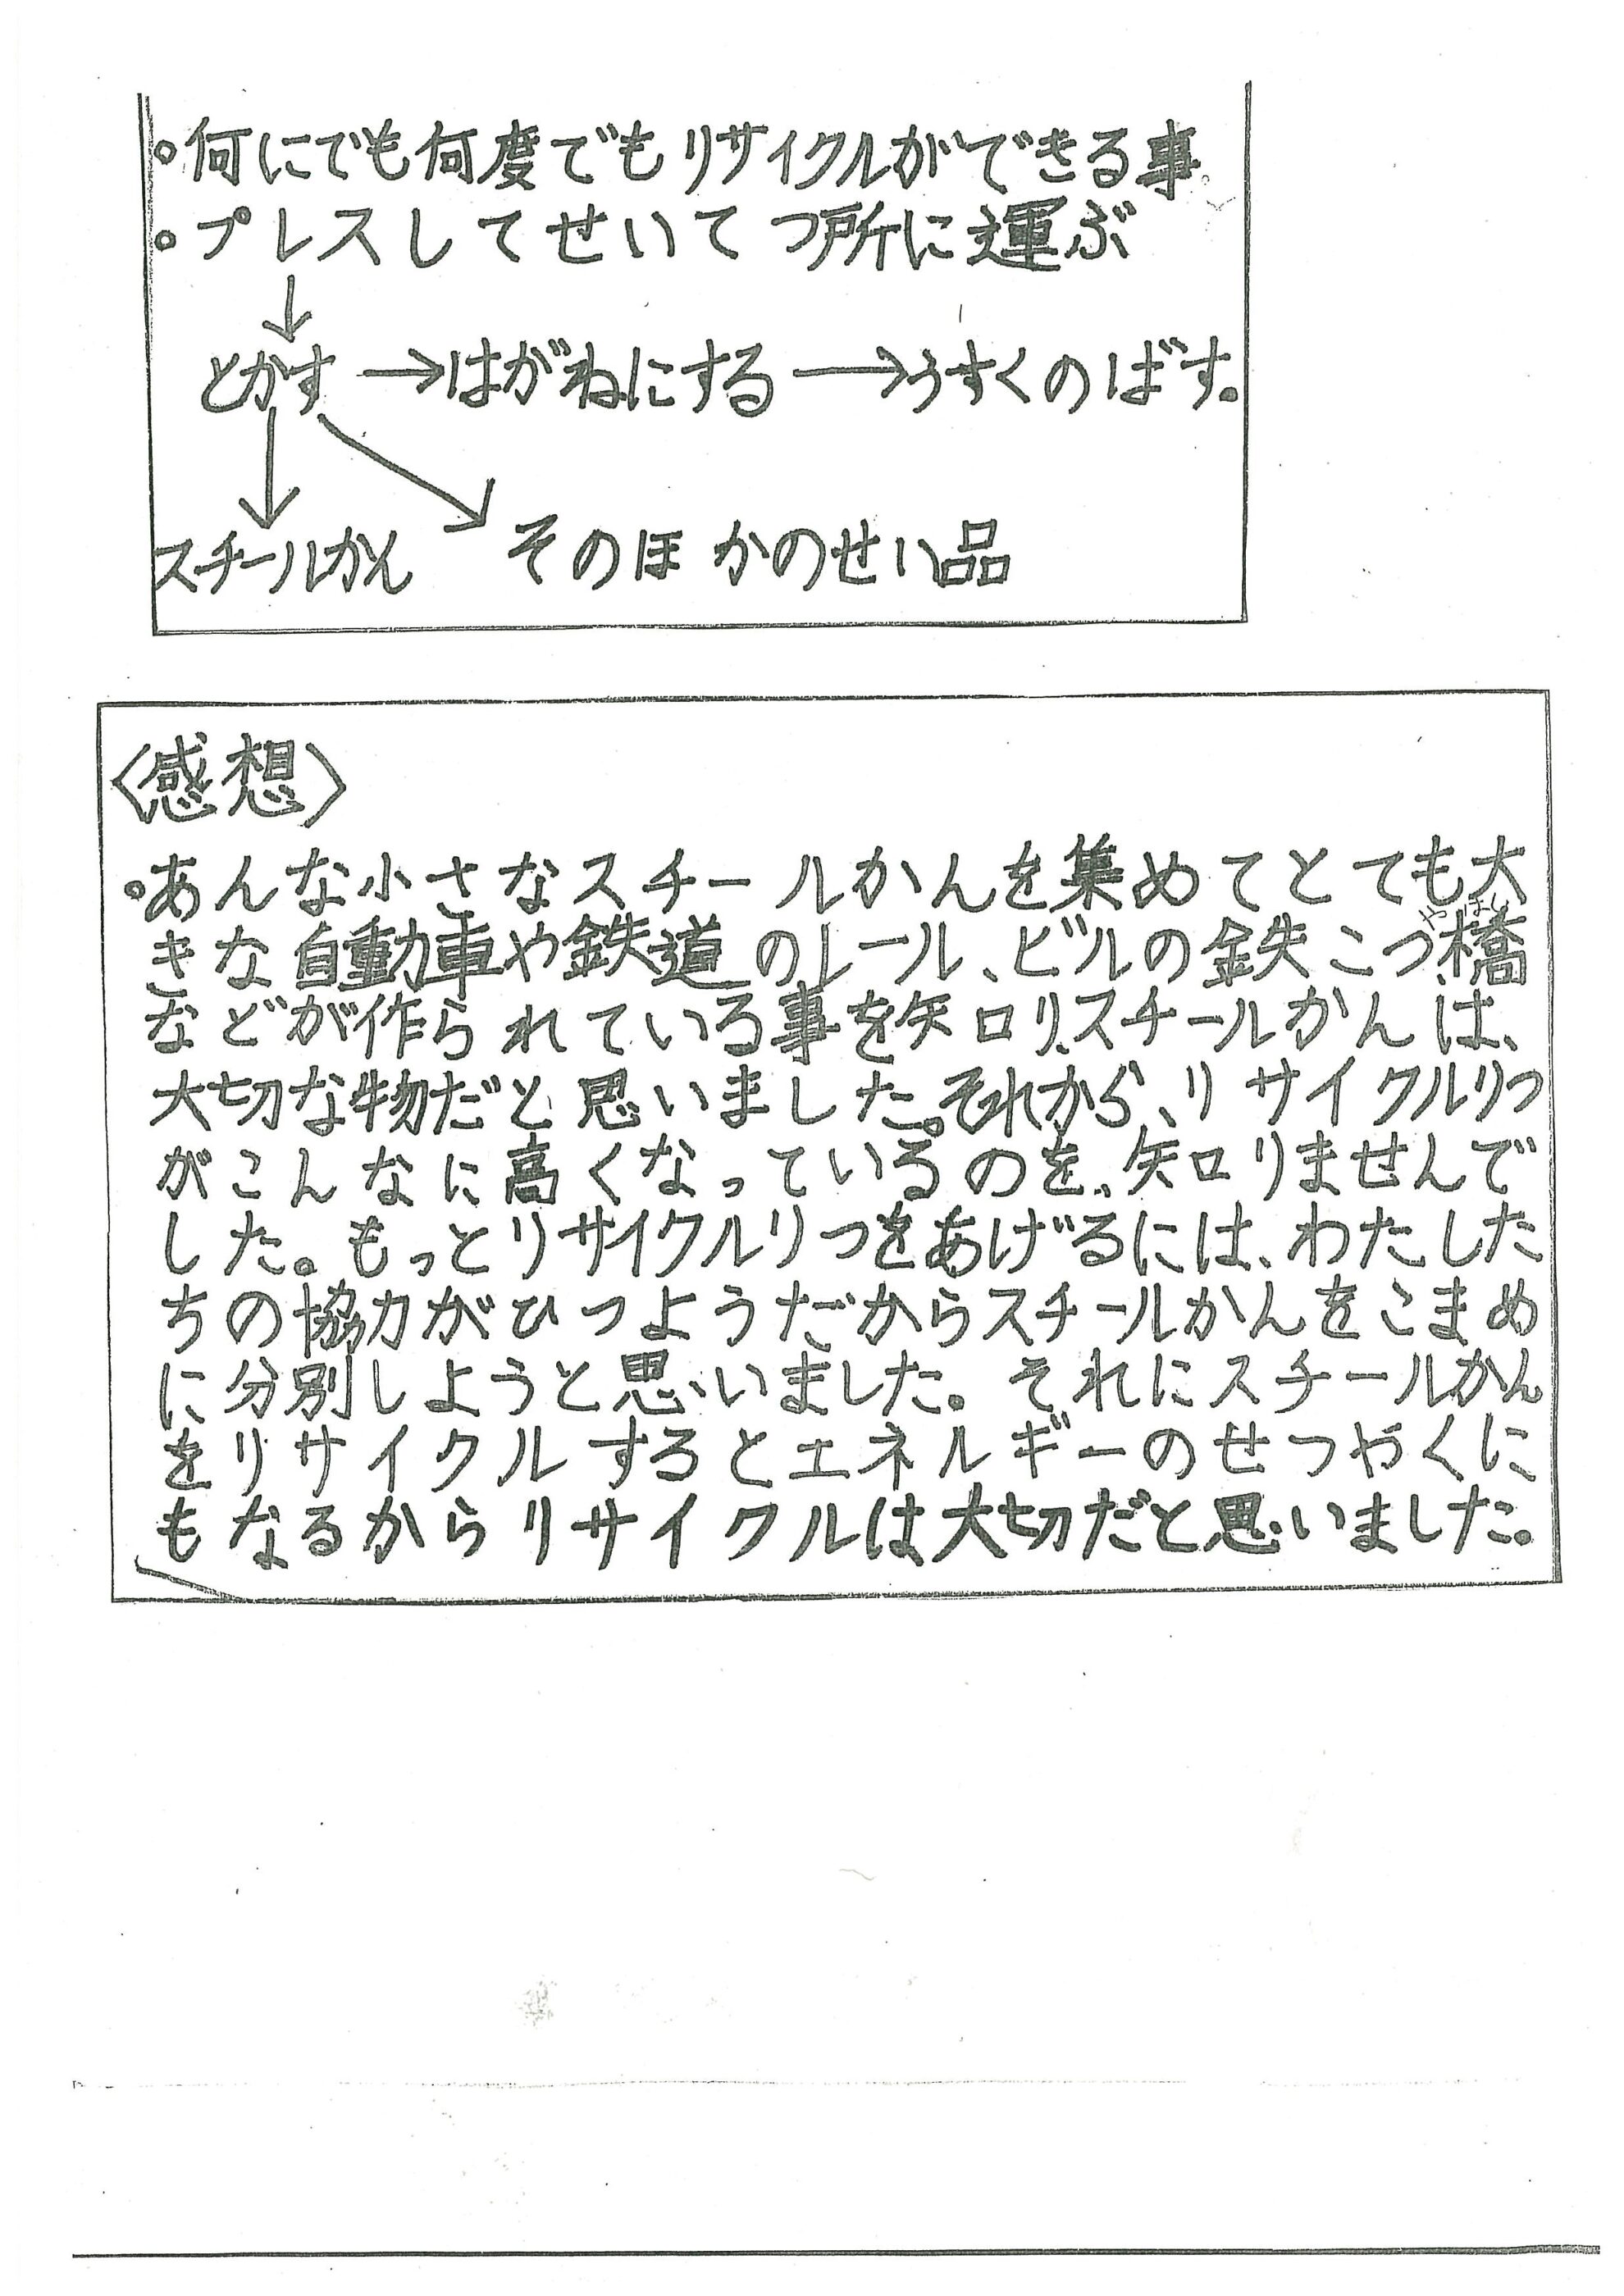 。何にでも何度でもリサイクルができる事
。プレスしてせいてつ所に運ぶ
↓
とかす→はがねにする→うすくのばす。
↓ ↘
スチールかん そのほかのせい品
〈感想〉
。あんな小さなスチールかんを集めてとても大
きな自動車や鉄道のレール、ビルの鉄こつ、橋
やはし
などが作られている事を知り、スチールかんは、
大切な物だと思いました。それから、リサイクルりつ
がこんなに高くなっているのを、知りませんで
した。もっとリサイクルりつをあげるには、わたした
ちの協力がひつようだからスチールかんをこまめ
に分別しようと思いました。それにスチールかん
をリサイクルするとエネルギーのせつやくに
もなるからリサイクルは大切だと思いました。